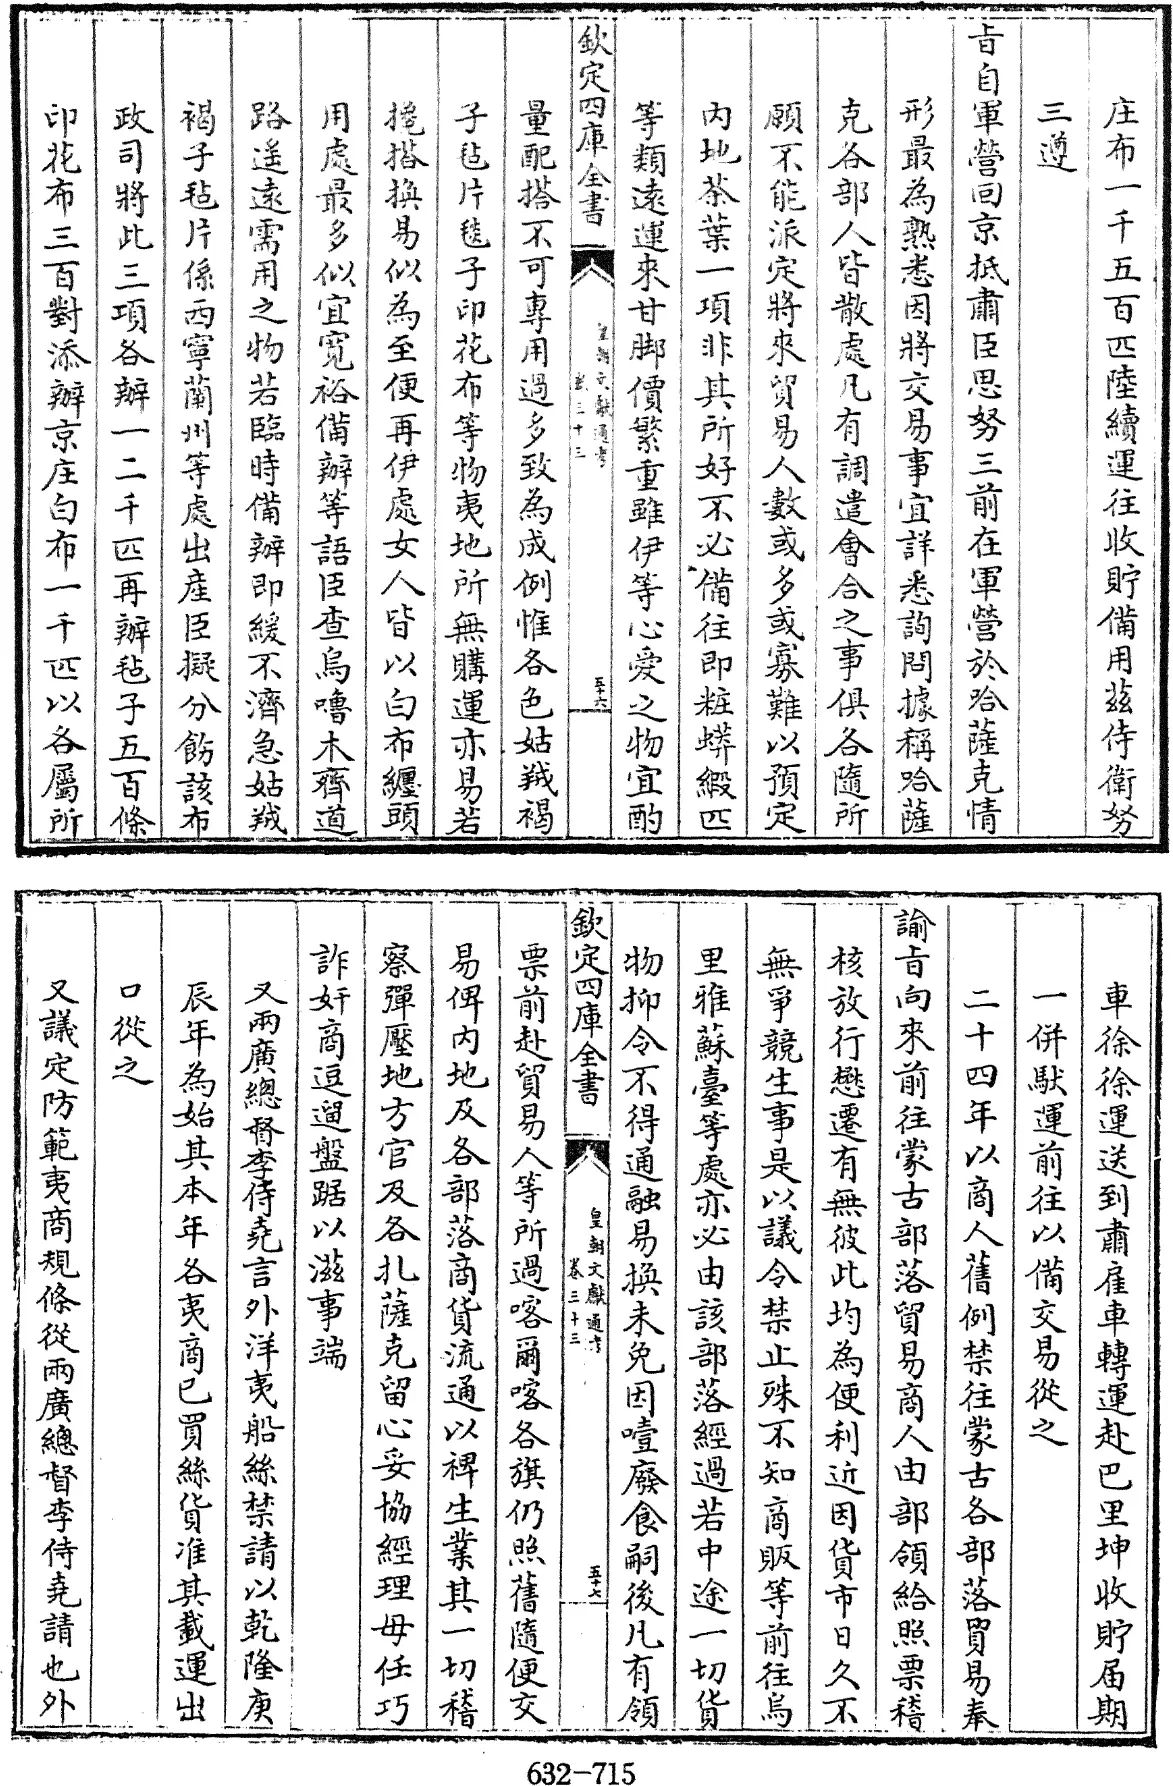 庄布一千五百匹陸續運往收貯備用茲侍衛努
三遵
旨自軍營回京抵肅臣思努三前在軍營於哈薩克情
形最為熟悉因將交易事宜詳悉詢問據稱哈薩
克各部人皆散處凡有調遣會合之事俱各隨所
願不能派定將來貿易人數或多或寡難以預定
內地茶葉一項非其所好不必備往即粧蟒緞匹
等類遠運來甘脚價繁重雖伊等心愛之物宜酌
欽定四庫全書
皇朝文獻通考
卷三十三
五十六
量配搭不可專用過多致為成例惟各色姑羢褐
子毡片毯子印花布等物夷地所無購運亦易若
搀搭換易似為至便再伊處女人皆以白布纏頭
用處最多似宜寬裕備辦等語臣查烏嚕木齊道
路遙遠需用之物若臨時備辦即緩不濟急姑羢
褐子毡片係西寧蘭州等處出產臣擬分飭該布
政司將此三項各辦一二千匹再辦毡子五百條
印花布三百對添辦京庄白布一千匹以各屬所
車徐徐運送到肅雇車轉運赴巴里坤收貯屆期
一併馱運前往以備交易從之
二十四年以商人舊例禁往蒙古各部落貿易奉
諭旨向來前往蒙古部落貿易商人由部領給照票稽
核放行懋遷有無彼此均為便利近因貨市日久不
無爭競生事是以議令禁止殊不知商販等前往烏
里雅蘇臺等處亦必由該部落經過若中途一切貨
物抑令不得通融易換未免因噎廢食嗣後凡有領
欽定四庫全書
皇朝文獻通考
卷三十三
五十七
票前赴貿易人等所過喀爾喀各旗仍照舊隨便交
易俾內地及各部落商貨流通以裨生業其一切稽
察彈壓地方官及各扎薩克留心妥協經理毋任巧
詐奸商逗遛盤踞以滋事端
又兩廣總督李侍堯言外洋夷船絲禁請以乾隆庚
辰年為始其本年各夷商已買絲貨准其載運出
口從之
又議定防範夷商規條從兩廣總督李侍堯請也外
632-715